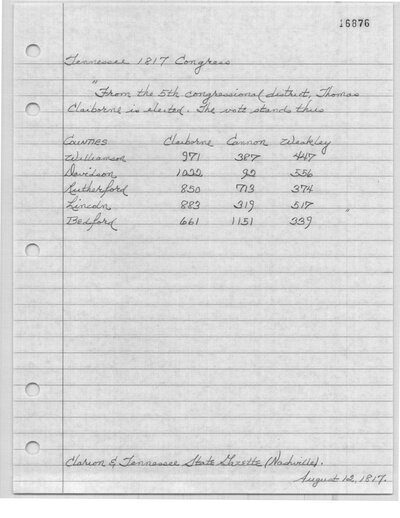 16876
Tennessee 1817 Congress
"From the 5th congressional district, Thomas
Claiborne is elected. The vote stands thus
Counties Claiborne Cannon Weakley
Williamson 971 387 447
Davidson 1022 92 556
Rutherford 850 713 374
Lincoln 883 319 517
Bedford 661 1151 339 "
Clarion & Tennessee State Gazette (Nashville).
August 12, 1817.